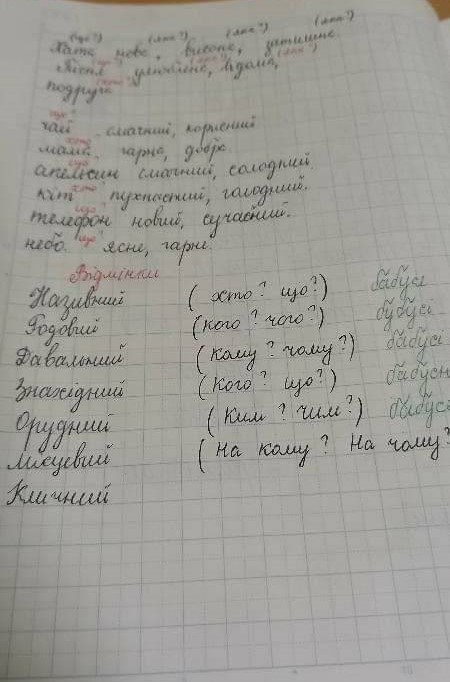 (що?) (яка?) (яка?) (яка?)
Хата нова, висока, затишна.
Пісня улюблена, відома,
подруга
чай що? смачний, корисний
мама хто? гарна, добра.
апельсин що? смачний, солодкий.
кіт хто? пухнастий, голодний.
телефон що? новий, сучасний.
небо що? ясне, гарне.
Відмінки
Називний (хто? що?) бабусі
Родовий (кого? чого?)
Давальний (кому? чому?) бабусі
Знахідний (кого? що?)
Орудний (Ким? чим?)
Місцевий (На кому? На чому?
Кличний